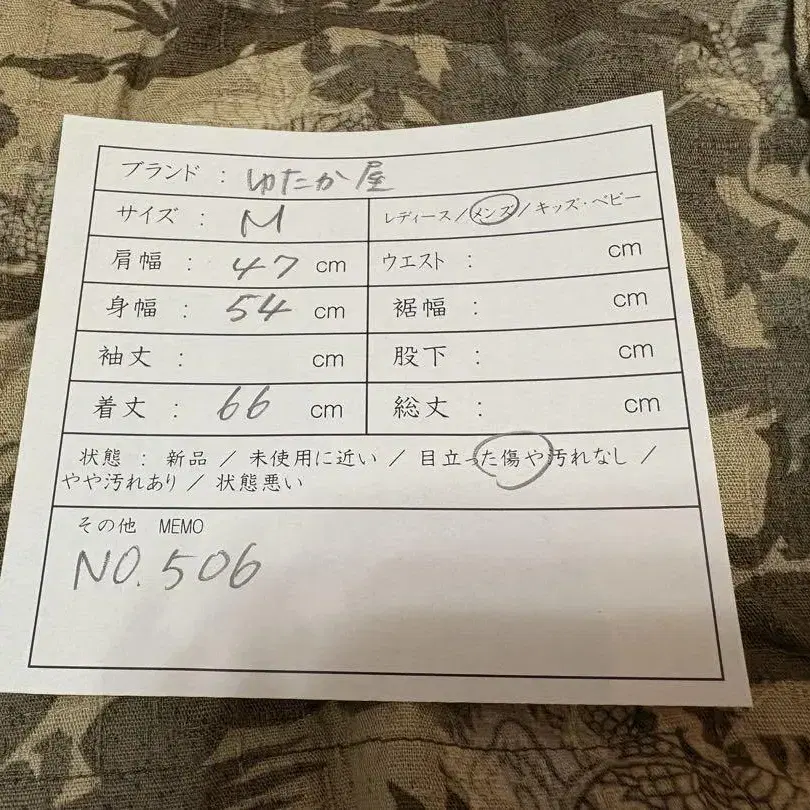 ブランド : ゆたか屋
サイズ : M
レディース / メンズ / キッズ・ベビー
肩幅 : 47 cm
ウエスト : cm
身幅 : 54 cm
裾幅 : cm
袖丈 : cm
股下 : cm
着丈 : 66 cm
総丈 : cm
状態 : 新品 / 未使用に近い / 目立った傷や汚れなし /
やや汚れあり / 状態悪い
その他 MEMO
NO.506